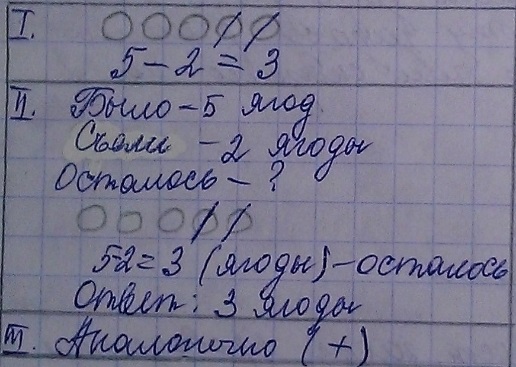 I.
5 - 2 = 3
II. Было - 5 ягод.
Съели - 2 ягоды
Осталось - ?
5-2 = 3 (ягоды) - осталось
Ответ: 3 ягоды
III. Аналогично (+)